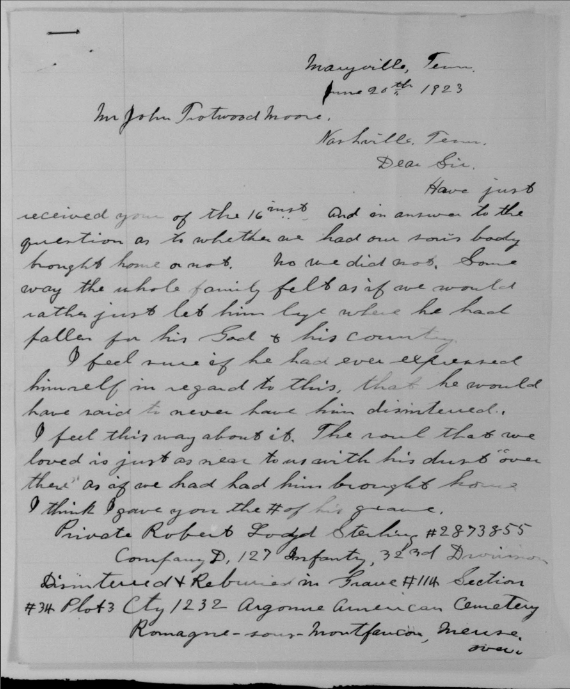 Maryville, Tenn.
June 20th 1923
Mr John Trotwood Moore.
Nashville, Tenn.
Dear Sir.
Have just
received your of the 16 inst. And in answer to the
question as to whether we had our son's body
brought home or not. No we did not. Some
way the whole family felt as if we would
rather just let him lye where he had
fallen for his God & his country.
I feel sure if he had ever expressed
himself in regard to this, that he would
have said to never have him disinterred.
I feel this way about it. The soul that we
loved is just as near to us with his dust "over
there" as if we had had him brought home
I think I gave you the # of his grave.
Private Robert Loyd Sterling #2873855
Company D, 127 Infanty, 32 3d Division
Disinterred & Reburied in Grave #114 Section
#34 Plot 3 Cty 1232 Argonne American Cemetery
Romagne-sous-Montfaucon, Meuse.
over.